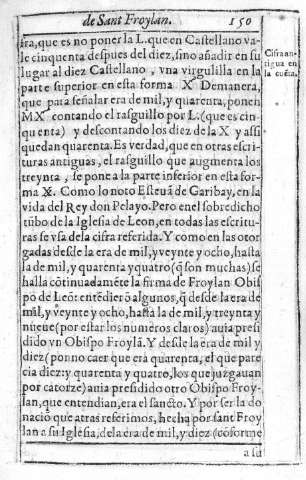 de Sant Froylan. 150
fra, que es no poner la L. que en Castellano va-
le cinquenta despues del diez, sino añadir en su
lugar al diez Castellano, vna virgulilla en la
parte superior en esta forma X' Demanera,
que para señalar era de mil, y quarenta, ponen
MX' contando el rasguillo por L. (que es cin
quenta) y descontando los diez de la X y assi
quedan quarenta. Es verdad, que en otras escri-
turas antiguas, el rasguillo que augmenta los
treynta, se pone a la parte inferior en esta for-
ma X. Como lo noto Esteuã de Garibay, en la
vida del Rey don Pelayo. Pero en el sobredicho
tũbo de la Iglesia de Leon, en todas las escritu-
ras se vsa de la cifra referida. Y como en las otor
gadas desde la era de mil, y veynte y ocho, hasta
la de mil, y quarenta y quatro (q̃ son muchas) se
halla cõtinuadamẽte la firma de Froylan Obis
po de Leõ: entẽdierõ algunos, q̃ desde la era de
mil, y veynte y ocho, hasta la de mil, y treynta y
nueue (por estar los numeros claros) auia presi
dido vn Obispo Froylã. Y desde la era de mil y
diez (por no caer que era quarenta, el que pare
cia diez: y quarenta y quatro, los que juzgauan
por catorze) auia presidido otro Obispo Froy-
lan, que entendian, era el sancto. Y por ser la do
nacio que atras referimos, hecha por sant Froy
lan a su Iglesia, de la era de mil, y diez (cõforme
a su
Cifra an-
tigua en
la cuẽta.